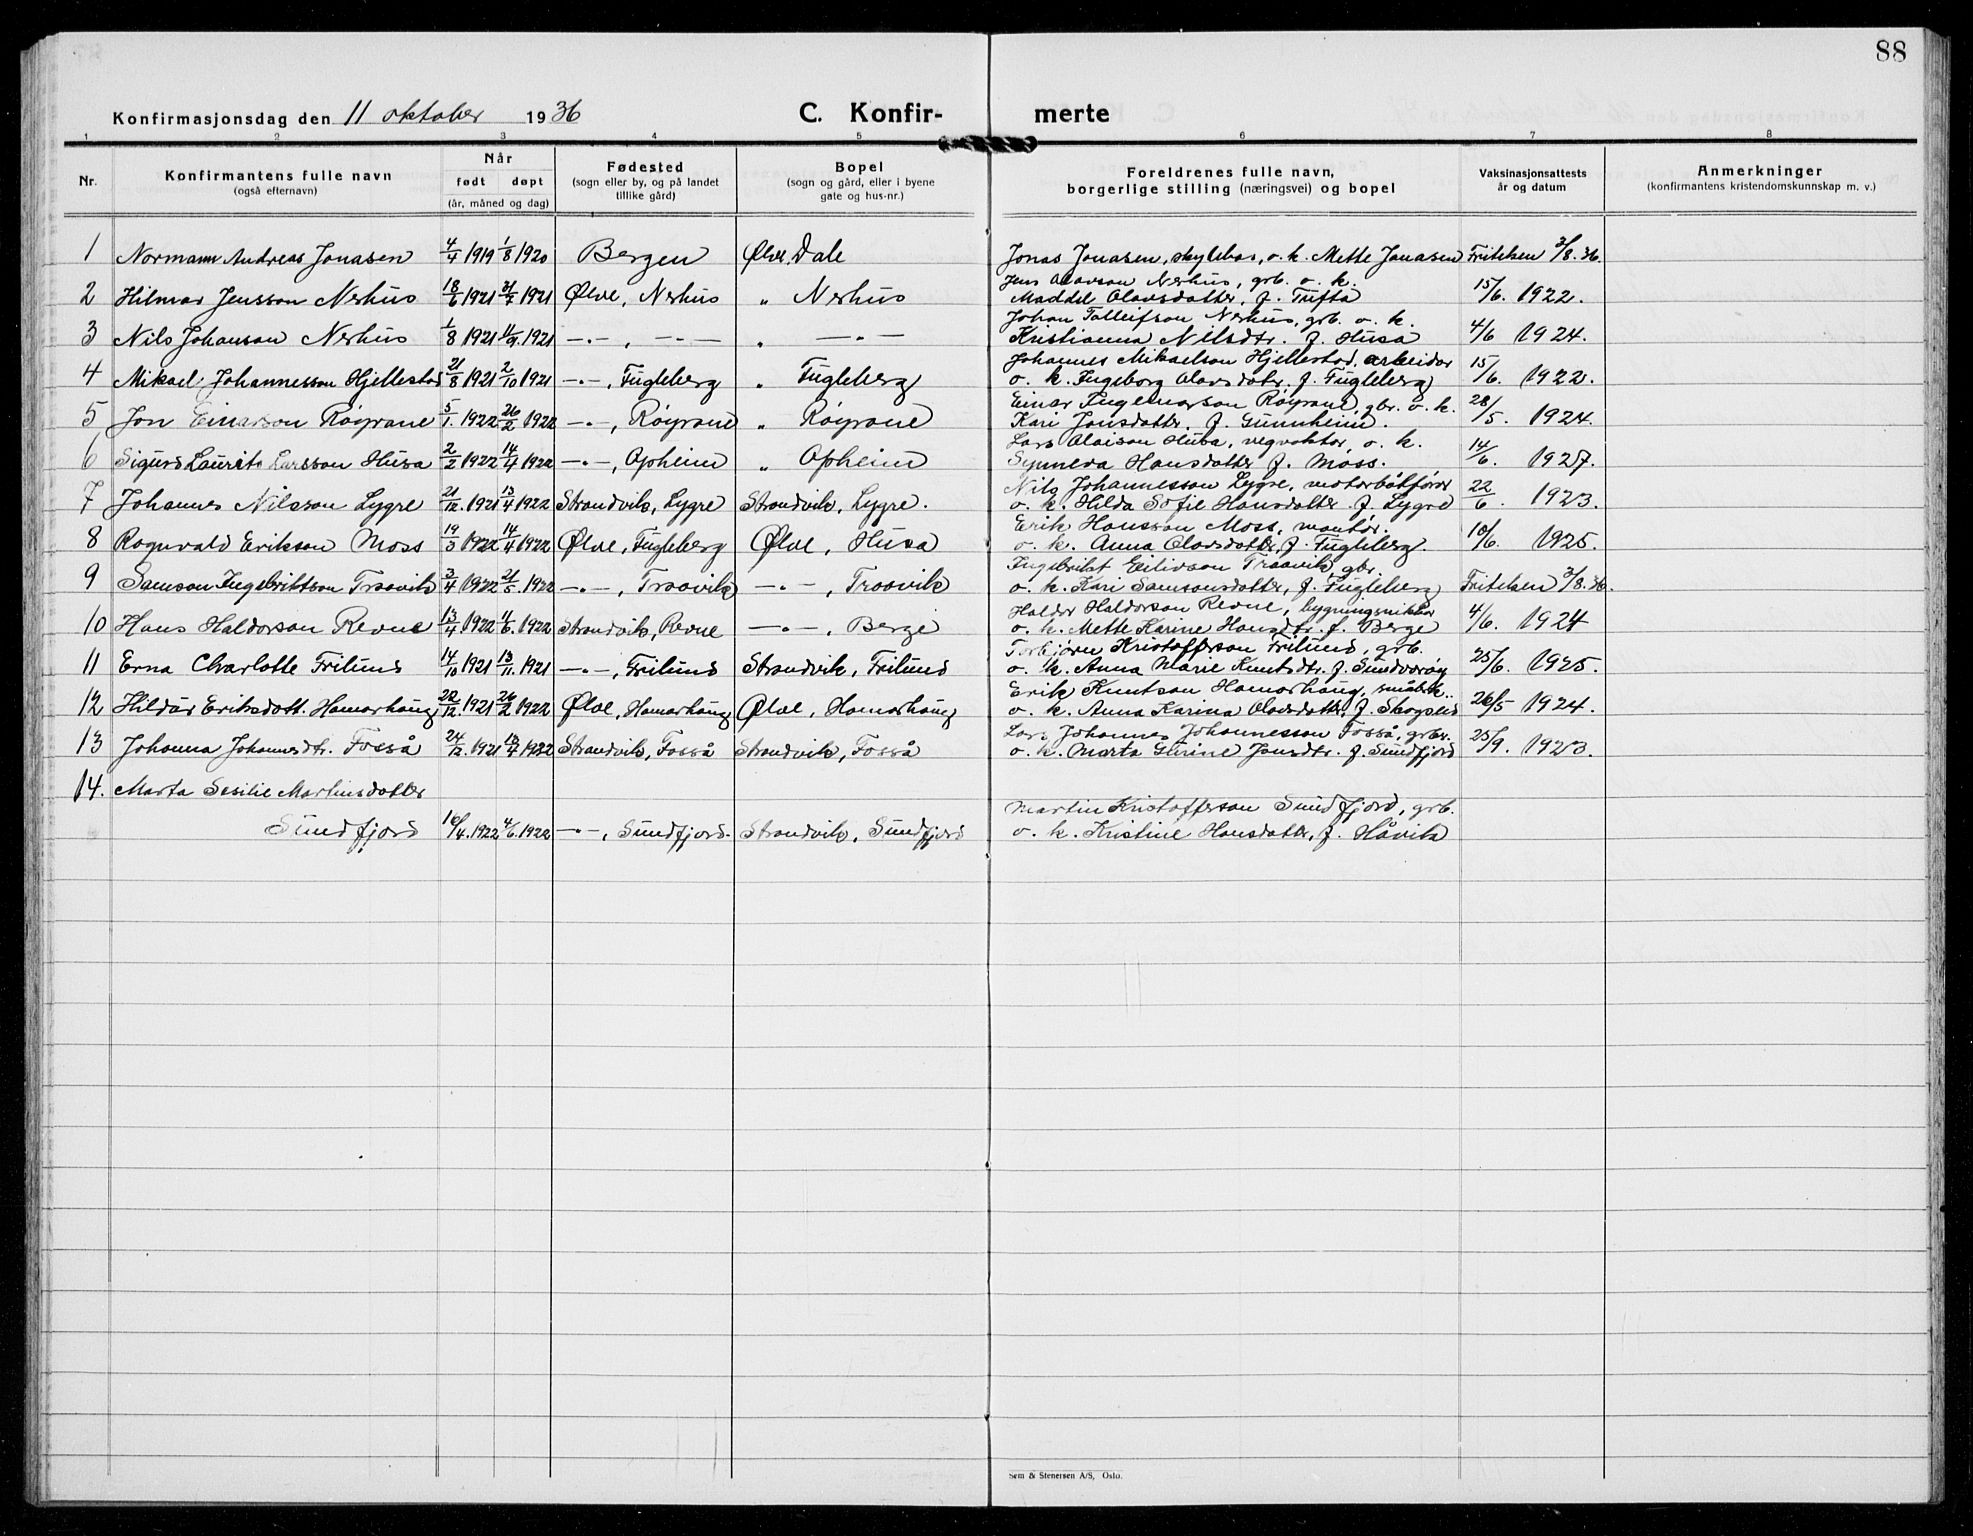 88
Konfirmasjonsdag den 11 oktober 1936
C. Konfir-
merte
1 2 3 4 5 6 7 8
Nr.
Konfirmantens fulle navn
(også efternavn)
Når
født døpt
(år, måned og dag)
Fødested
(sogn eller by, og på landet
tillike gård)
Bopel
(sogn og gård, eller i byene
gate og hus-nr.)
Foreldrenes fulle navn,
borgerlige stilling (næringsvei) og bopel
Vaksinasjonsattests
år og datum
Anmerkninger
(konfirmantens kristendomskunnskap m. v.)
1 Normann Andreas Jonasen 4/4 1919 1/8 1920 Bergen Ølve, Dale Jonas Jonasen, o. k. Mette Jonasen Friteken 3/8.36.
Jens Olavson Nerhus, grb. o. k.
2 Hilmar Jensson Nerhus 18/6 1921 31/7 1921 Ølve, Nerhus „ Nerhus Maddel Olavsdatter, f. Tufta 15/6. 1922.
Johan Tolleifson Nerhus, grb. o. k.
3 Nils Johanson Nerhus 1/8 1921 11/9. 1921 —·—, —·— „ —·— Kristianna Nilsdtr. f. Husa 4/6 1924.
Johannes Mikaelson Hjellestad, arbeider
4 Mikael Johannesson Hjellestad 21/8 1921 2/10 1921 —·—, Fugleberg „ Fugleberg o. k. Ingeborg Olavsdatr. f. Fugleberg 15/6. 1922.
Einar Ingemarson Røyrane, gbr. o. k.
5 Jon Einarson Røyrane 5/1. 1922 26/2 1922 —·—, Røyrane „ Røyrane Kari Jonsdatter, f. Gunnheim. 28/5. 1924.
Lars Olaison Husa, vegvaktar, o. k.
6 Sigurd Laurits Larsson Husa 2/2 1922 14/4 1922 —·—, Opheim „ Opheim Synneva Hansdatter f. Moss. 14/6. 1927.
Nils Johannesson Lygre, motorbåtførar
7 Johannes Nilsson Lygre 21/12. 1921 13/4 1922 Strandvik, Lygre Strandvik, Lygre. o. k. Hilda Sofie Hansdatter f. Lygre 22/6. 1923.
Erik Hansson Moss, montør.
8 Rognvald Erikson Moss 19/3 1922 14/4 1922 Ølve, Fugleberg Ølve, Husa o. k. Anna Olavsdatter, f. Fugleberg. 10/6. 1925.
Ingebrikt Eilivson Traavik, gbr.
9 Samson Ingebrittson Traavik 3/4 1922 21/5. 1922 —·—, Traavik —·—, Traavik o. k. Kari Samsonsdatter, f. Fugleberg Friteken 3/8.36.
Haldor Haldorson Revne, bygningsnikkar
10 Hans Haldorson Revne 13/4 1922 4/6. 1922 Strandvik, Revne —·—, Berge o. k. Mette Karine Hansdtr. f. Berge 4/6. 1924
Torbjørn Kristofferson Frilund, grb.
11 Erna Charlotte Frilund 14/10 1921 13/11. 1921 —·—, Frilund Strandvik, Frilund o. k. Anna Marie Knutsdtr. f. Sundvorøy 25/6. 1925.
Erik Knutson Hamarhaug, småbrk..
12 Hildur Eriksdott. Hamarhaug 22/12. 1921 26/2 1922 Ølve, Hamarhaug Ølve, Hamarhaug o. k. Anna Karina Olavsdatter, f. Skogseid 26/5 1924.
Lars Johannes Johannesson Fosså, grbr.
13 Johanna Johannesdtr. Fosså 24/12. 1921 17/4 1922 Strandvik, Fosså Strandvik, Fosså o. k. Marta Gurine Jansdtr. f. Sundfjord 25/9. 1923.
14. Marta Sesilie Martinsdatter
Martin Kristofferson Sundfjord, grb.
Sundfjord 16/4. 1922 4/6. 1922 —·—, Sundfjord. Strandvik, Sundfjord o. k. Kristine Hansdatter, f. Håvik
Sem & Stenersen A/S, Oslo.